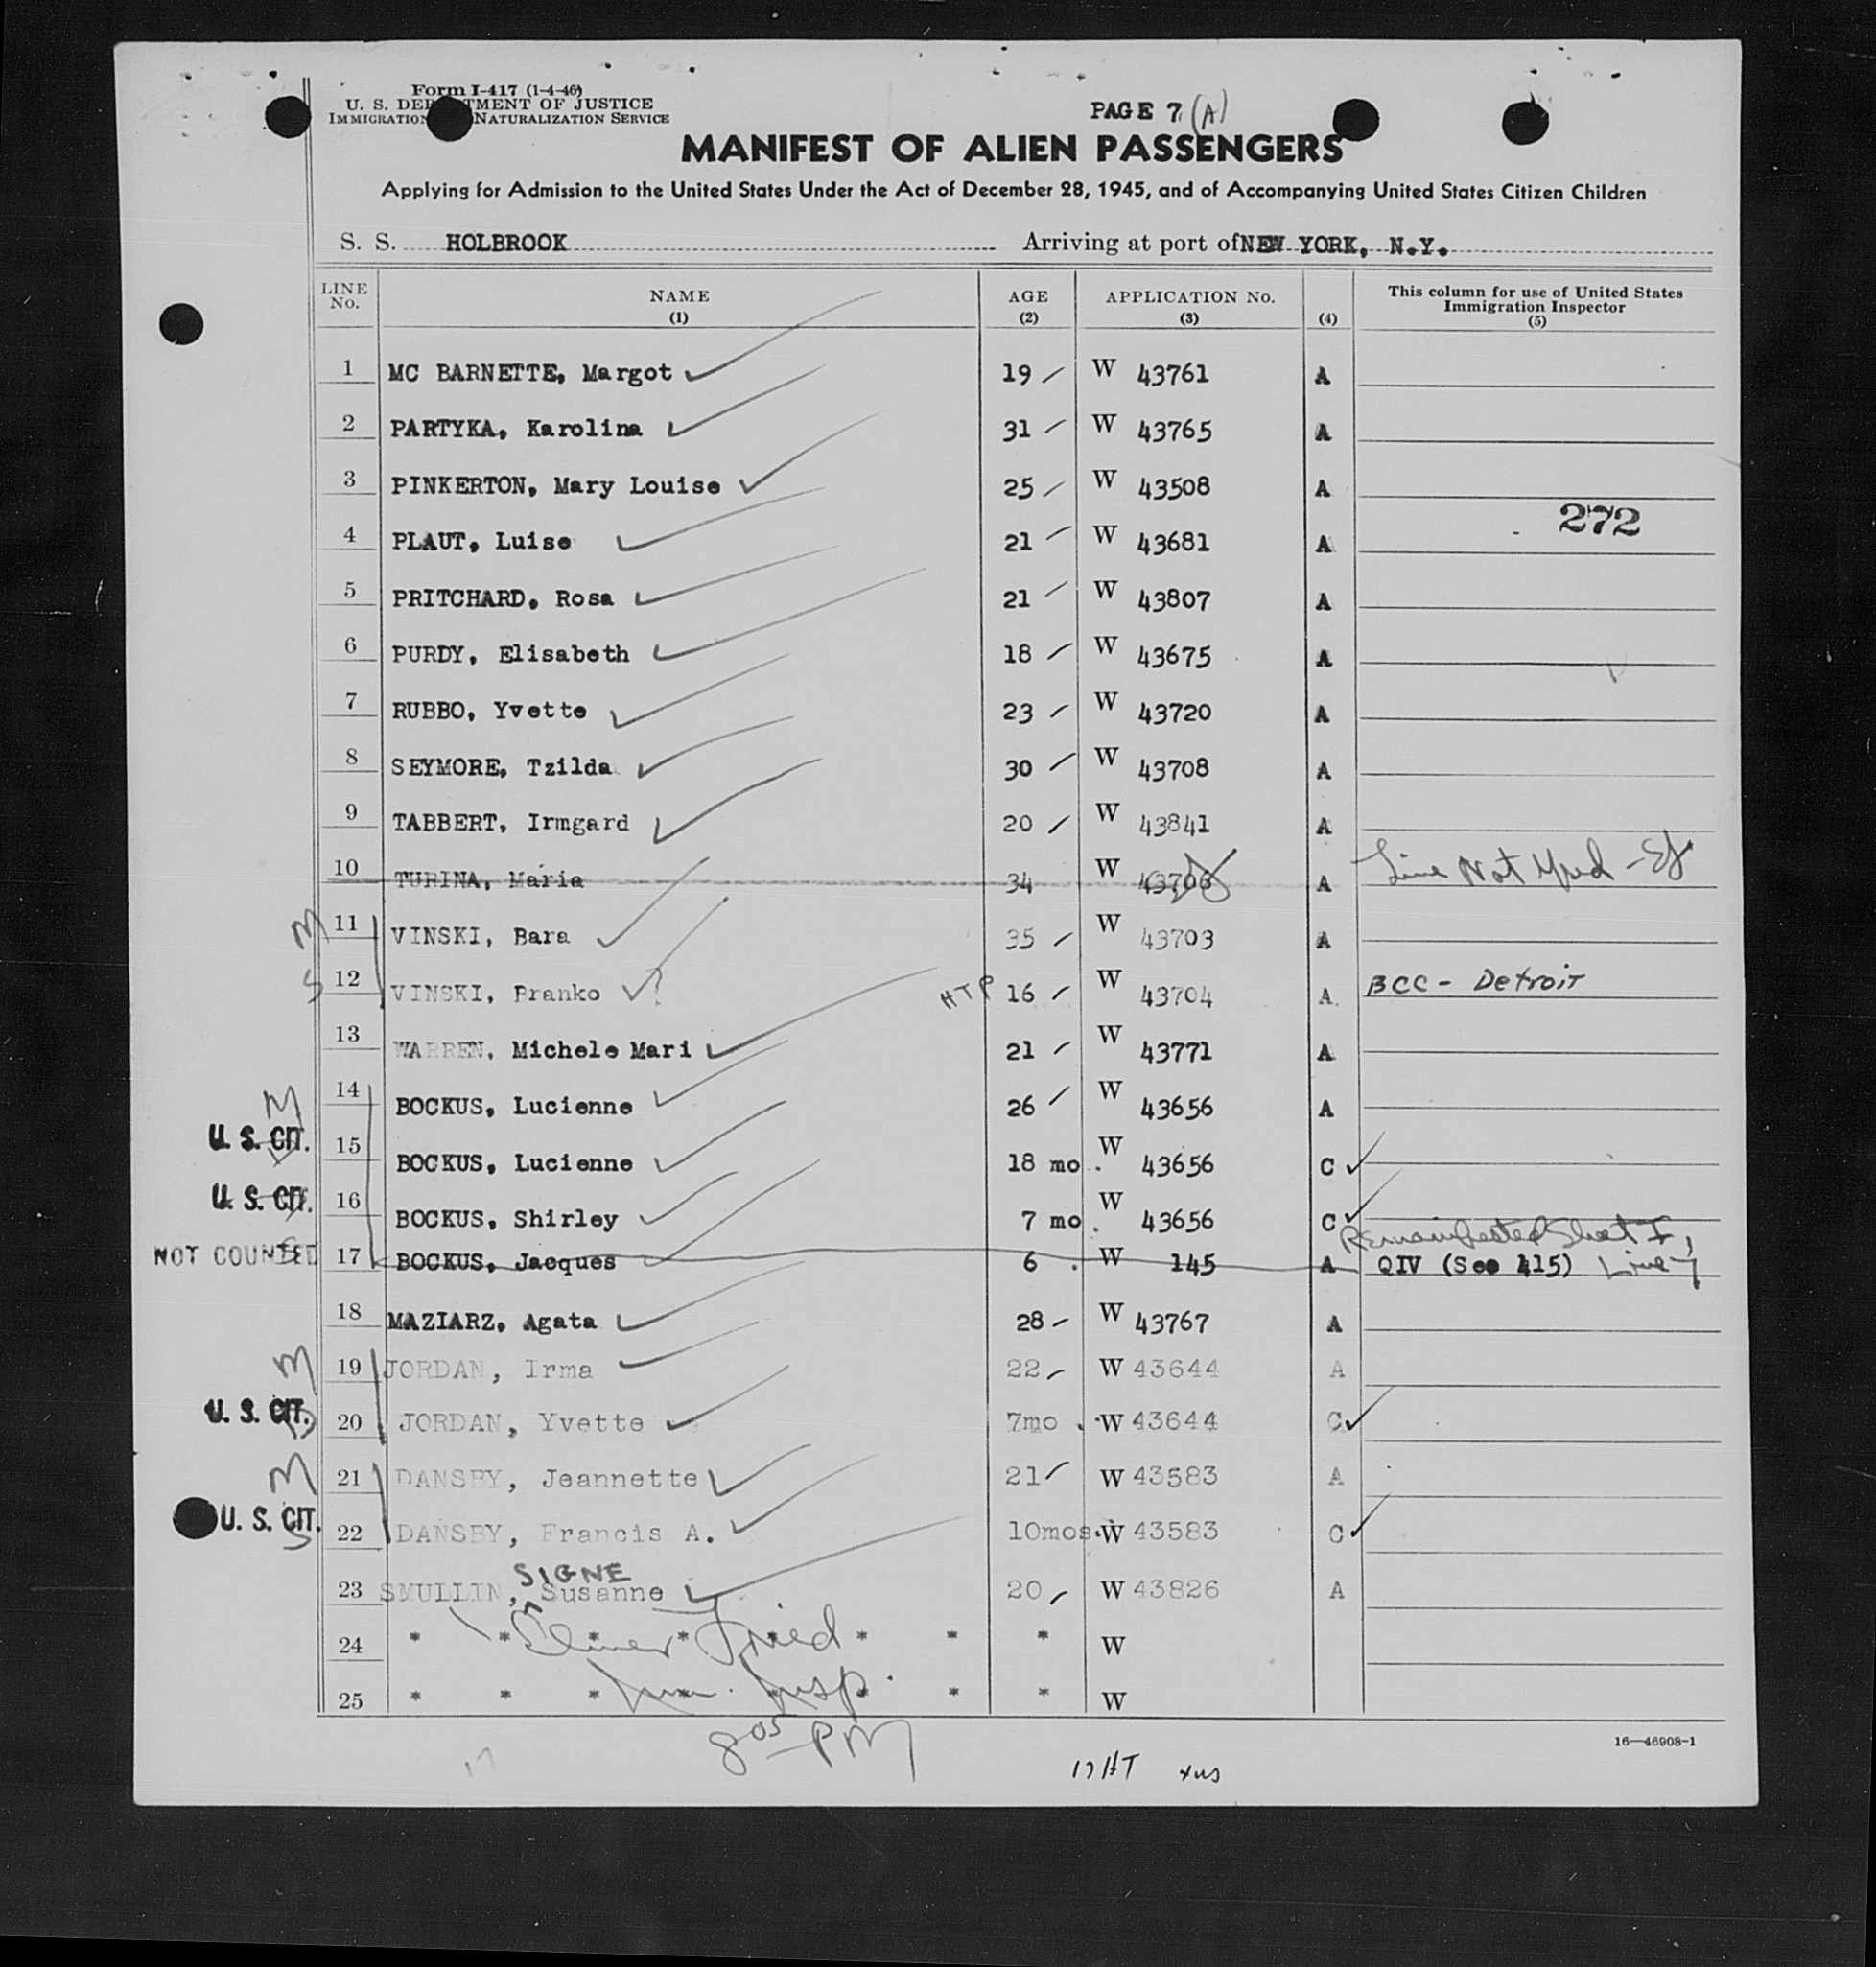 Form I-417 (1-4-46)
U. S. DEPARTMENT OF JUSTICE
IMMIGRATION NATURALIZATION SERVICE
PAGE 7 (A)
MANIFEST OF ALIEN PASSENGERS
Applying for Admission to the United States Under the Act of December 28, 1945, and of Accompanying United States Citizen Children
S. S. HOLBROOK Arriving at port of NEW YORK, N.Y.
LINE No. NAME (1) AGE (2) APPLICATION No. (3) (4) This column for use of United States Immigration Inspector (5)
1 MC BARNETTE, Margot 19 W 43761 A
2 PARTYKA, Karolina 31 W 43765 A
3 PINKERTON, Mary Louise 25 W 43508 A
272
4 PLAUT, Luise 21 W 43681 A
5 PRITCHARD, Rosa 21 W 43807 A
6 PURDY, Elisabeth 18 W 43675 A
7 RUBBO, Yvette 23 W 43720 A
8 SEYMORE, Tzilda 30 W 43708 A
9 TABBERT, Irmgard 20 W 43841 A
10 TURINA, Maria 34 W 43706 A Line Not
M 11 VINSKI, Bara 35 W 43703 A
S 12 VINSKI, Branko ? HTP 16 W 43704 A. BCC - Detroit
13 WARREN, Michele Mari 21 W 43771 A
M 14 BOCKUS, Lucienne 26 W 43656 A
U. S. CIT. 15 BOCKUS, Lucienne 18 mo. W 43656 C
U. S. CIT. 16 BOCKUS, Shirley 7 mo. W 43656 C
Remanifested Sheet I,
NOT COUNTED 17 BOCKUS, Jacques 6 . W 145 A QIV (See 415) Line 7
18 MAZIARZ, Agata 28 W 43767 A
M 19 JORDAN, Irma 22 W 43644 A
U. S. CIT. 20 JORDAN, Yvette 7mo . W 43644 C
M 21 DANSBY, Jeannette 21 W 43583 A
U. S. CIT. 22 DANSBY, Francis A. 10mos. W 43583 C
SIGNE
23 SMULLIN, Susanne 20 W 43826 A
24 * * * * * * * * W
Elmer Fried
25 * * * * * * * * W
Imm. Insp.
8 05 PM
17
17 HT
16—46908-1